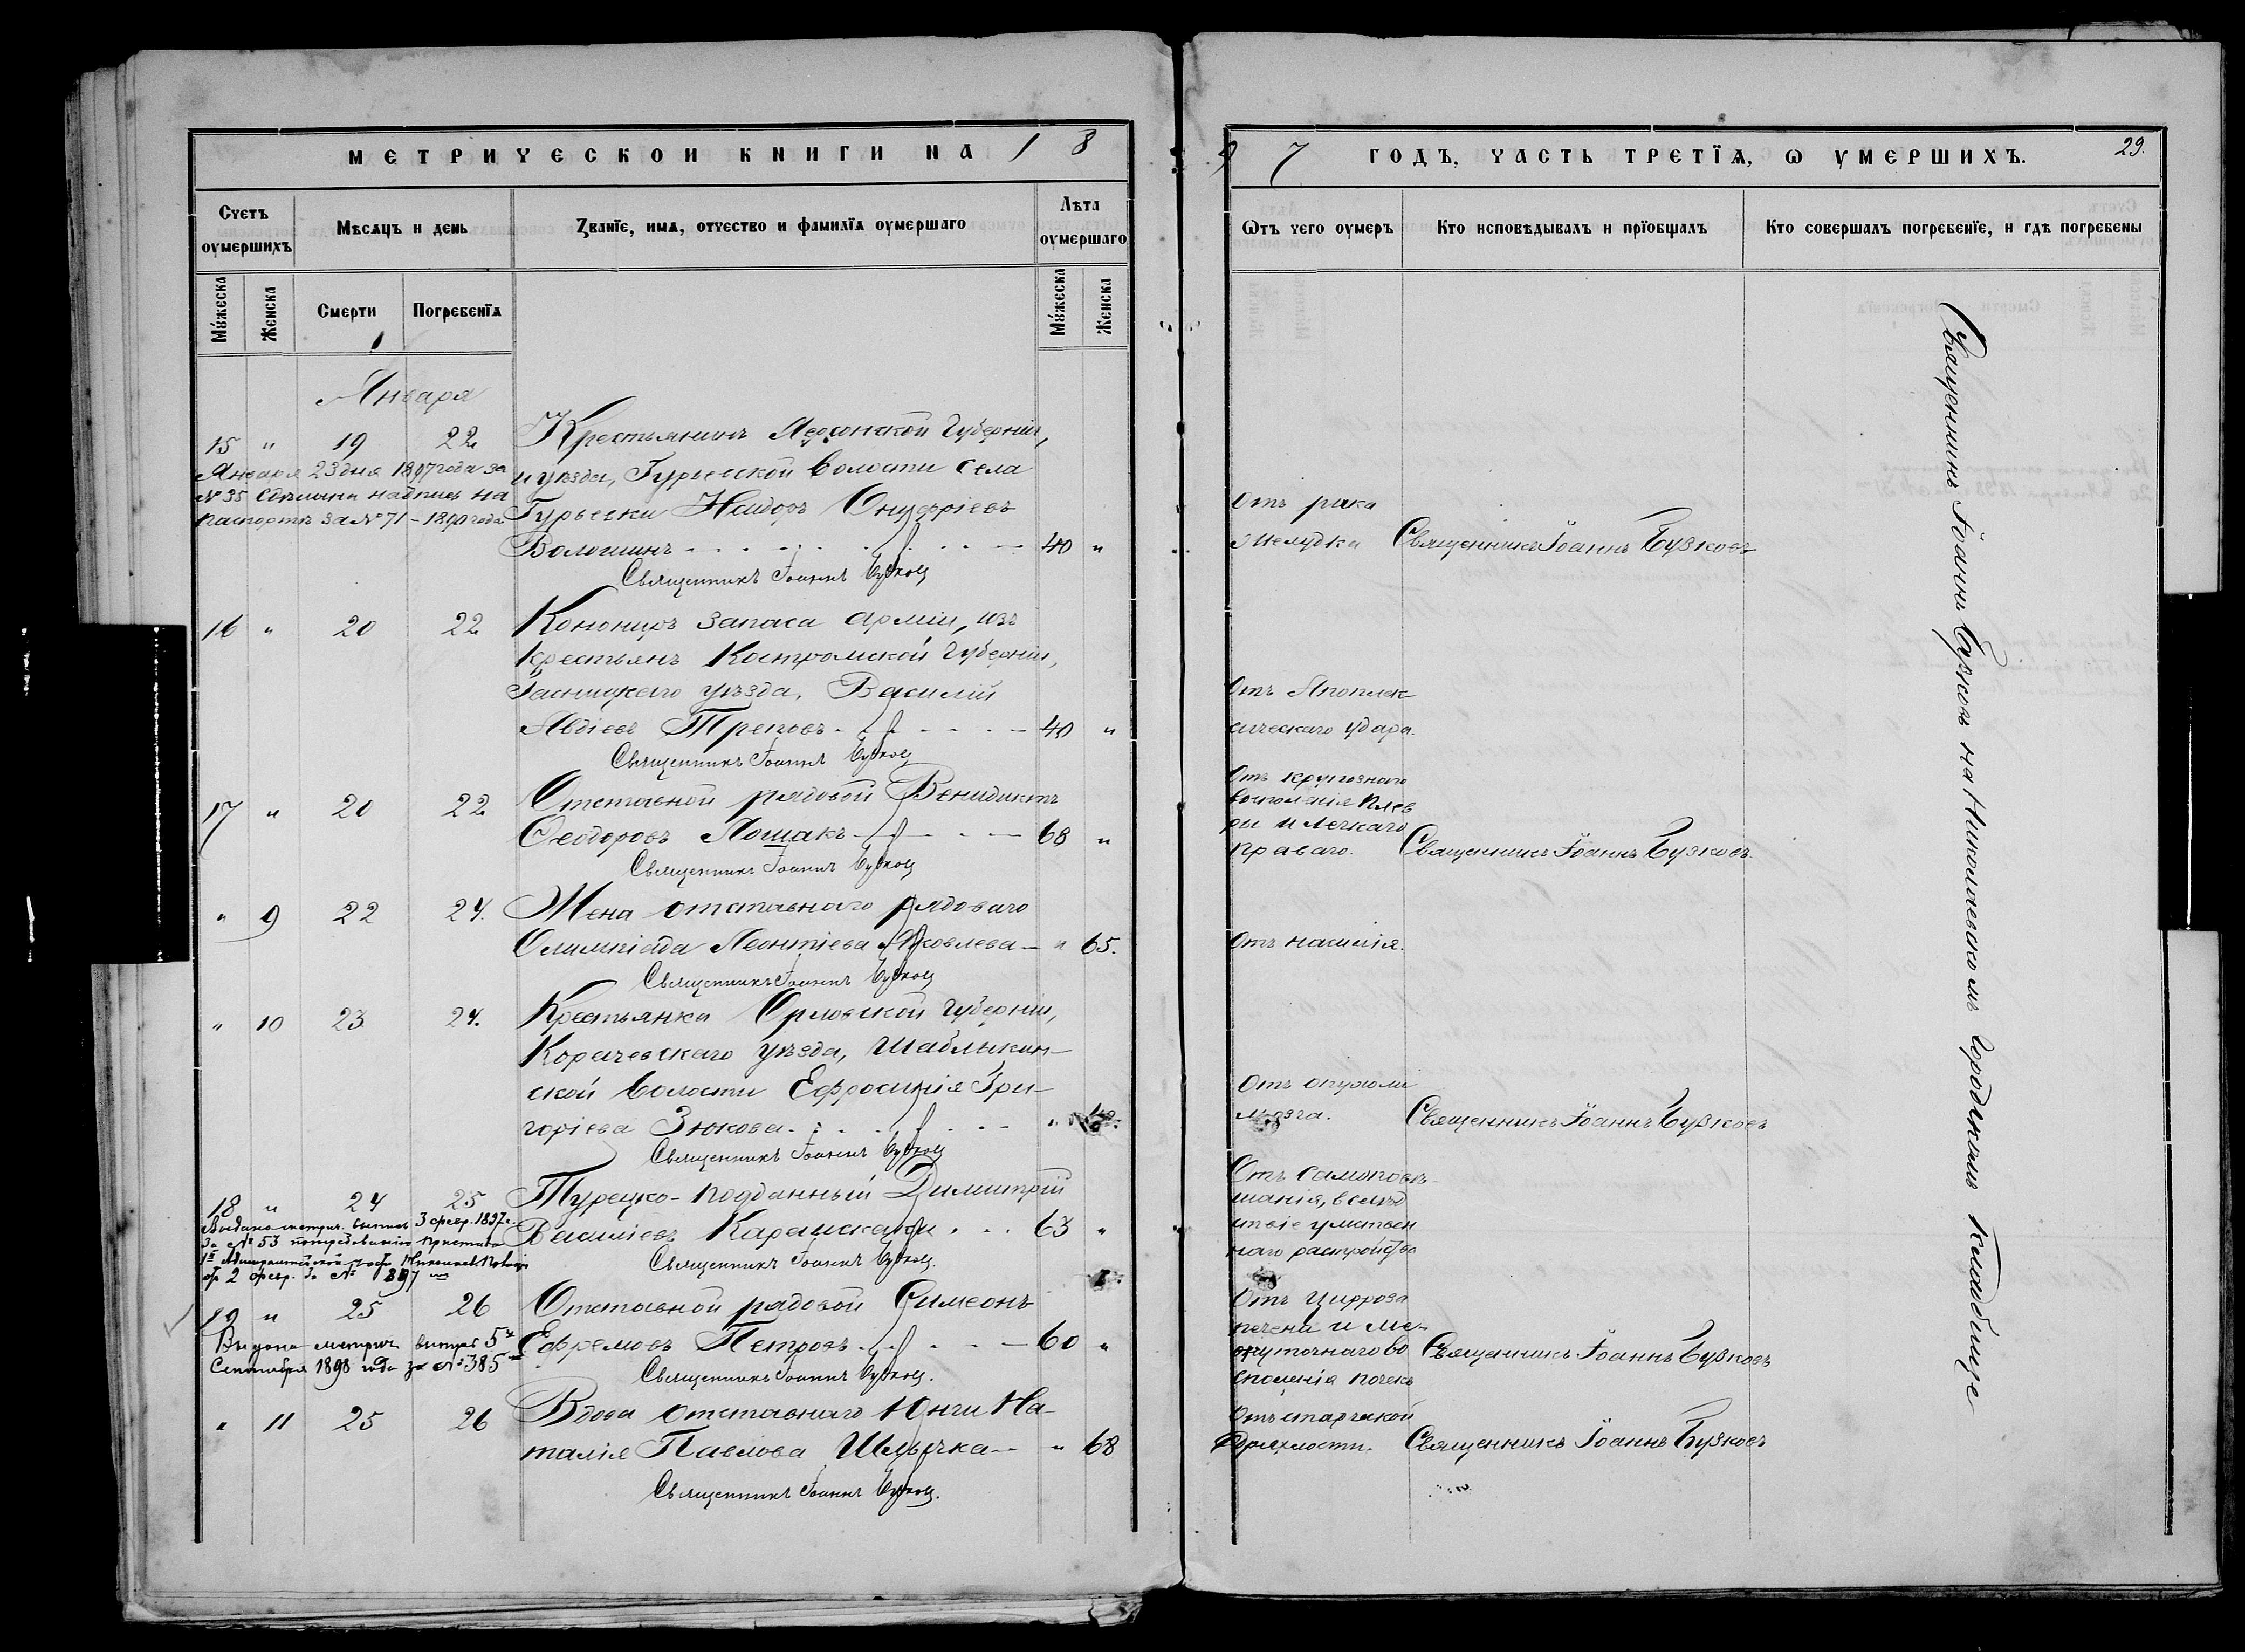 МЕТРИЧЕСКОЙ КНИГИ НА 18
97 ГОДЪ, ЧАСТЬ ТРЕТЇѦ, Ѡ УМЕРШИХЪ.
29.
Счетъ оумершихъ
Мѣсяцъ и день
Званїе, имѧ, отчество и фамилїѧ оумершаго
Лѣта оумершаго
Ѿтъ чего оумеръ
Кто исповѣдывалъ и прїобщалъ
Кто совершалъ погребенїе, и гдѣ погребены
Мужеска
Женска
Смерти
Погребенїѧ
Мужеска
Женска
Января
15 " 19 22 Крестьянинъ Херсонской Губерніи,
и уѣзда, Гурьевской волости села
Гурьевки Исидоръ Онуфріевъ
Волошинъ 40 "
Священникъ Іоаннъ Бузковъ
Января 23 дня 1897 года за
№ 35 сдѣлана надпись на
паспортѣ за № 71 - 1890 года
Отъ рака
желудка Священникъ Іоаннъ Бузковъ
16 " 20 22 Канониръ запаса арміи, изъ
крестьянъ Костромской Губерніи,
уѣзда, Василій
Авдіевъ Треповъ 40 "
Священникъ Іоаннъ Бузковъ
Отъ Апоплек
сическаго удара.
17 " 20 22 Отставной рядовой Венидиктъ
Ѳеодоровъ Лошакъ 68 "
Священникъ Іоаннъ Бузковъ
Отъ крупознаго
воспаленія плев
ры и легкаго
праваго. Священникъ Іоаннъ Бузковъ.
" 9 22 24. Жена отставного рядоваго
Олимпіада Леонтіева Яковлева " 65.
Священникъ Іоаннъ Бузковъ
Отъ насилія.
" 10 23 24. Крестьянка Орловской Губерніи,
Корачевскаго уѣзда, Шаблыкин-
ской волости Ефросинія Гри-
горіева Зюкова "
Священникъ Іоаннъ Бузковъ
Отъ опухоли
мозга. Священникъ Іоаннъ Бузковъ
18 " 24 25 Турецко-подданный Димитрій
Василіевъ 63 "
Священникъ Іоаннъ Бузковъ.
Выдана метрич. выпись 3 февр. 1897 г.
за № 53 по требованію Пристава
1й Адмиралтейской части
отъ 2 февр. за № 897
Отъ самоповѣ-
шанія, вслѣд
ствіе умствен
наго растройства
19 " 25 26 Отставной рядовой Симеонъ
Ефремовъ Петровъ 60 "
Священникъ Іоаннъ Бузковъ.
Выдана метрич. выпись 5го
Сентября 1898 года за № 385
Отъ цирроза
печени и ме-
жуточнаго во
спаленія почекъ Священникъ Іоаннъ Бузковъ
" 11 25 26 Вдова отставнаго Юнги На-
талія Павлова " 68
Священникъ Іоаннъ Бузковъ.
Отъ старческой
дряхлости. Священникъ Іоаннъ Бузковъ
Священникъ Іоаннъ Бузковъ на Николаевскомъ городскомъ кладбище